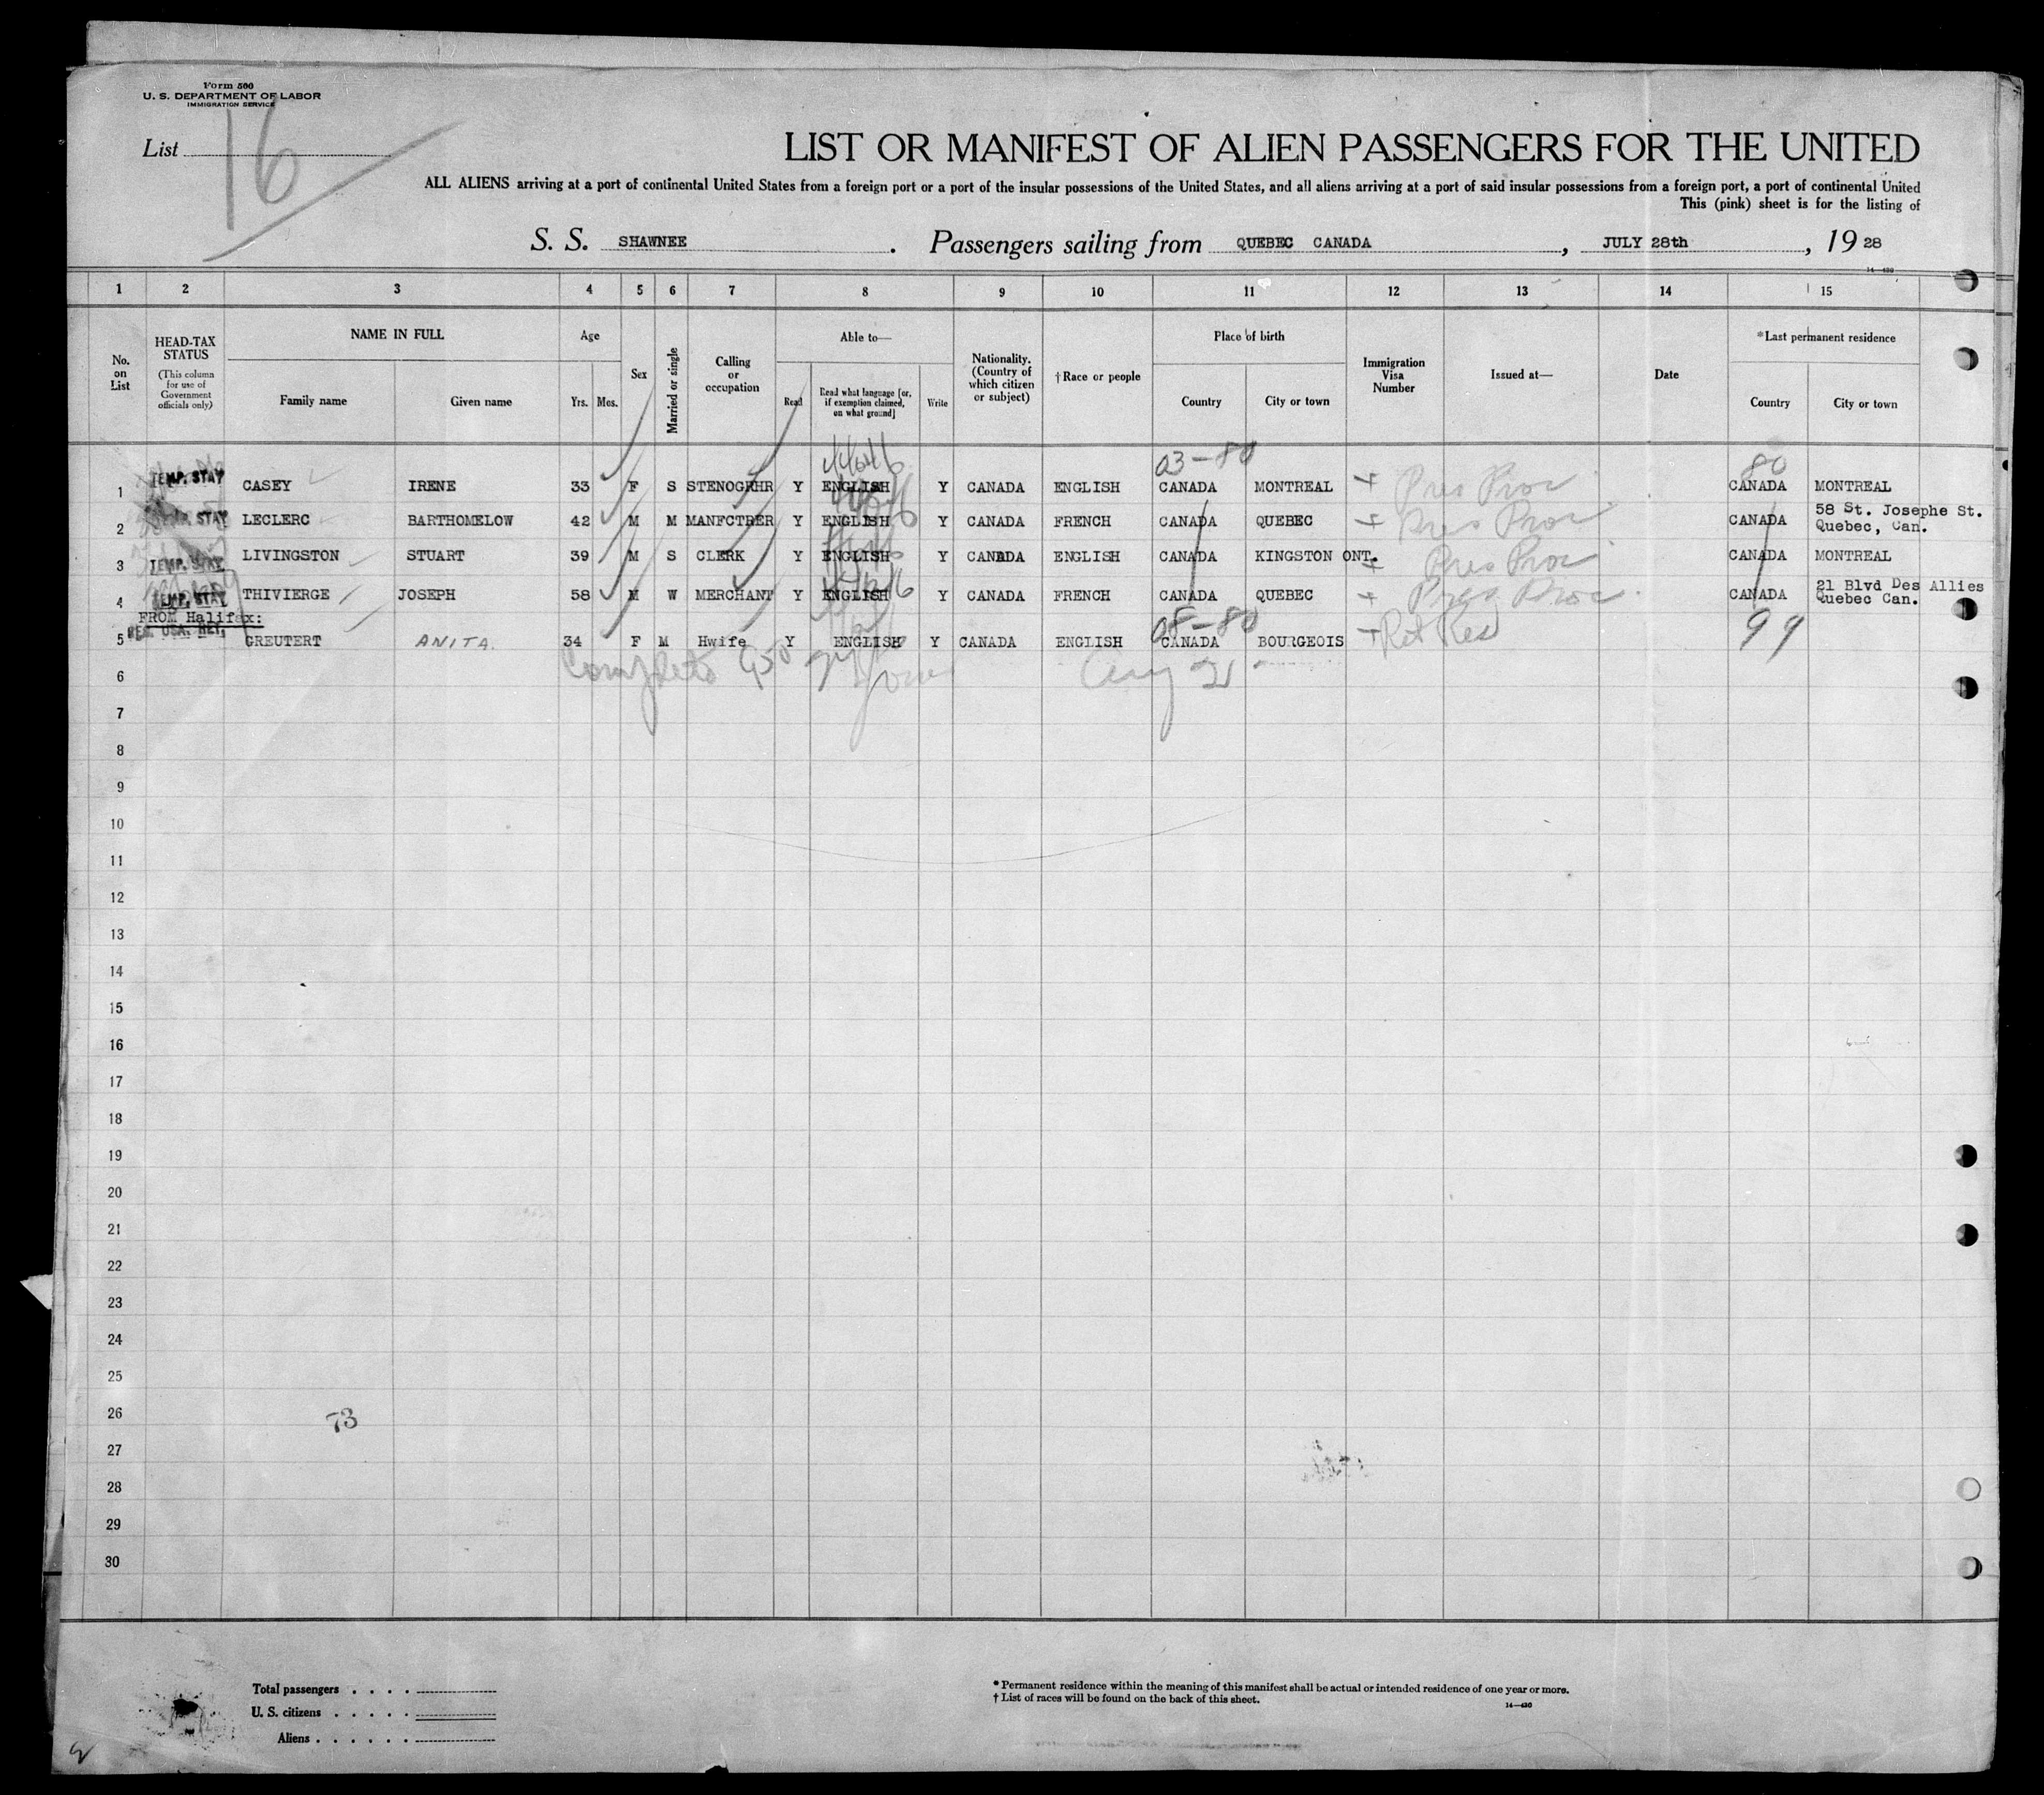 Form 500
U. S. DEPARTMENT OF LABOR
IMMIGRATION SERVICE
List 16
LIST OR MANIFEST OF ALIEN PASSENGERS FOR THE UNITED
ALL ALIENS arriving at a port of continental United States from a foreign port or a port of the insular possessions of the United States, and all aliens arriving at a port of said insular possessions from a foreign port, a port of continental United
This (pink) sheet is for the listing of
S. S. SHAWNEE . Passengers sailing from QUEBEC CANADA , JULY 28th , 19 28
14—430
1 2 3 4 5 6 7 8 9 10 11 12 13 14 15
No. on List
HEAD-TAX STATUS (This column for use of Government officials only)
NAME IN FULL
Family name Given name
Age
Yrs. Mos.
Sex
Married or single
Calling or occupation
Able to—
Read Read what language [or, if exemption claimed, on what ground] Write
Nationality. (Country of which citizen or subject)
†Race or people
Place of birth
Country City or town
Immigration Visa Number
Issued at—
Date
*Last permanent residence
Country City or town
03-80 80
1 TEMP. STAY CASEY IRENE 33 F S STENOGRHR Y ENGLISH Y CANADA ENGLISH CANADA MONTREAL Pres Proc CANADA MONTREAL
2 STAY LECLERC BARTHOMELOW 42 M M MANFCTRER Y ENGLISH Y CANADA FRENCH CANADA QUEBEC Pres Proc CANADA 58 St. Josephe St. Quebec, Can.
3 TEMP. STAY LIVINGSTON STUART 39 M S CLERK Y ENGLISH Y CANADA ENGLISH CANADA KINGSTON ONT. Pres Proc CANADA MONTREAL
4 TEMP. STAY THIVIERGE JOSEPH 58 M W MERCHANT Y ENGLISH Y CANADA FRENCH CANADA QUEBEC Pres Proc CANADA 21 Blvd Des Allies Quebec Can.
FROM Halifax: 08-80
5 USA. RET. GREUTERT ANITA. 34 F M Hwife Y ENGLISH Y CANADA ENGLISH CANADA BOURGEOIS Ret Res 99
Complete 950 Aug 21
6
7
8
9
10
11
12
13
14
15
16
17
18
19
20
21
22
23
24
25
26
73
27
28
29
30
Total passengers . . . .
U. S. citizens . . . . .
Aliens . . . . . .
* Permanent residence within the meaning of this manifest shall be actual or intended residence of one year or more.
† List of races will be found on the back of this sheet.
14—430